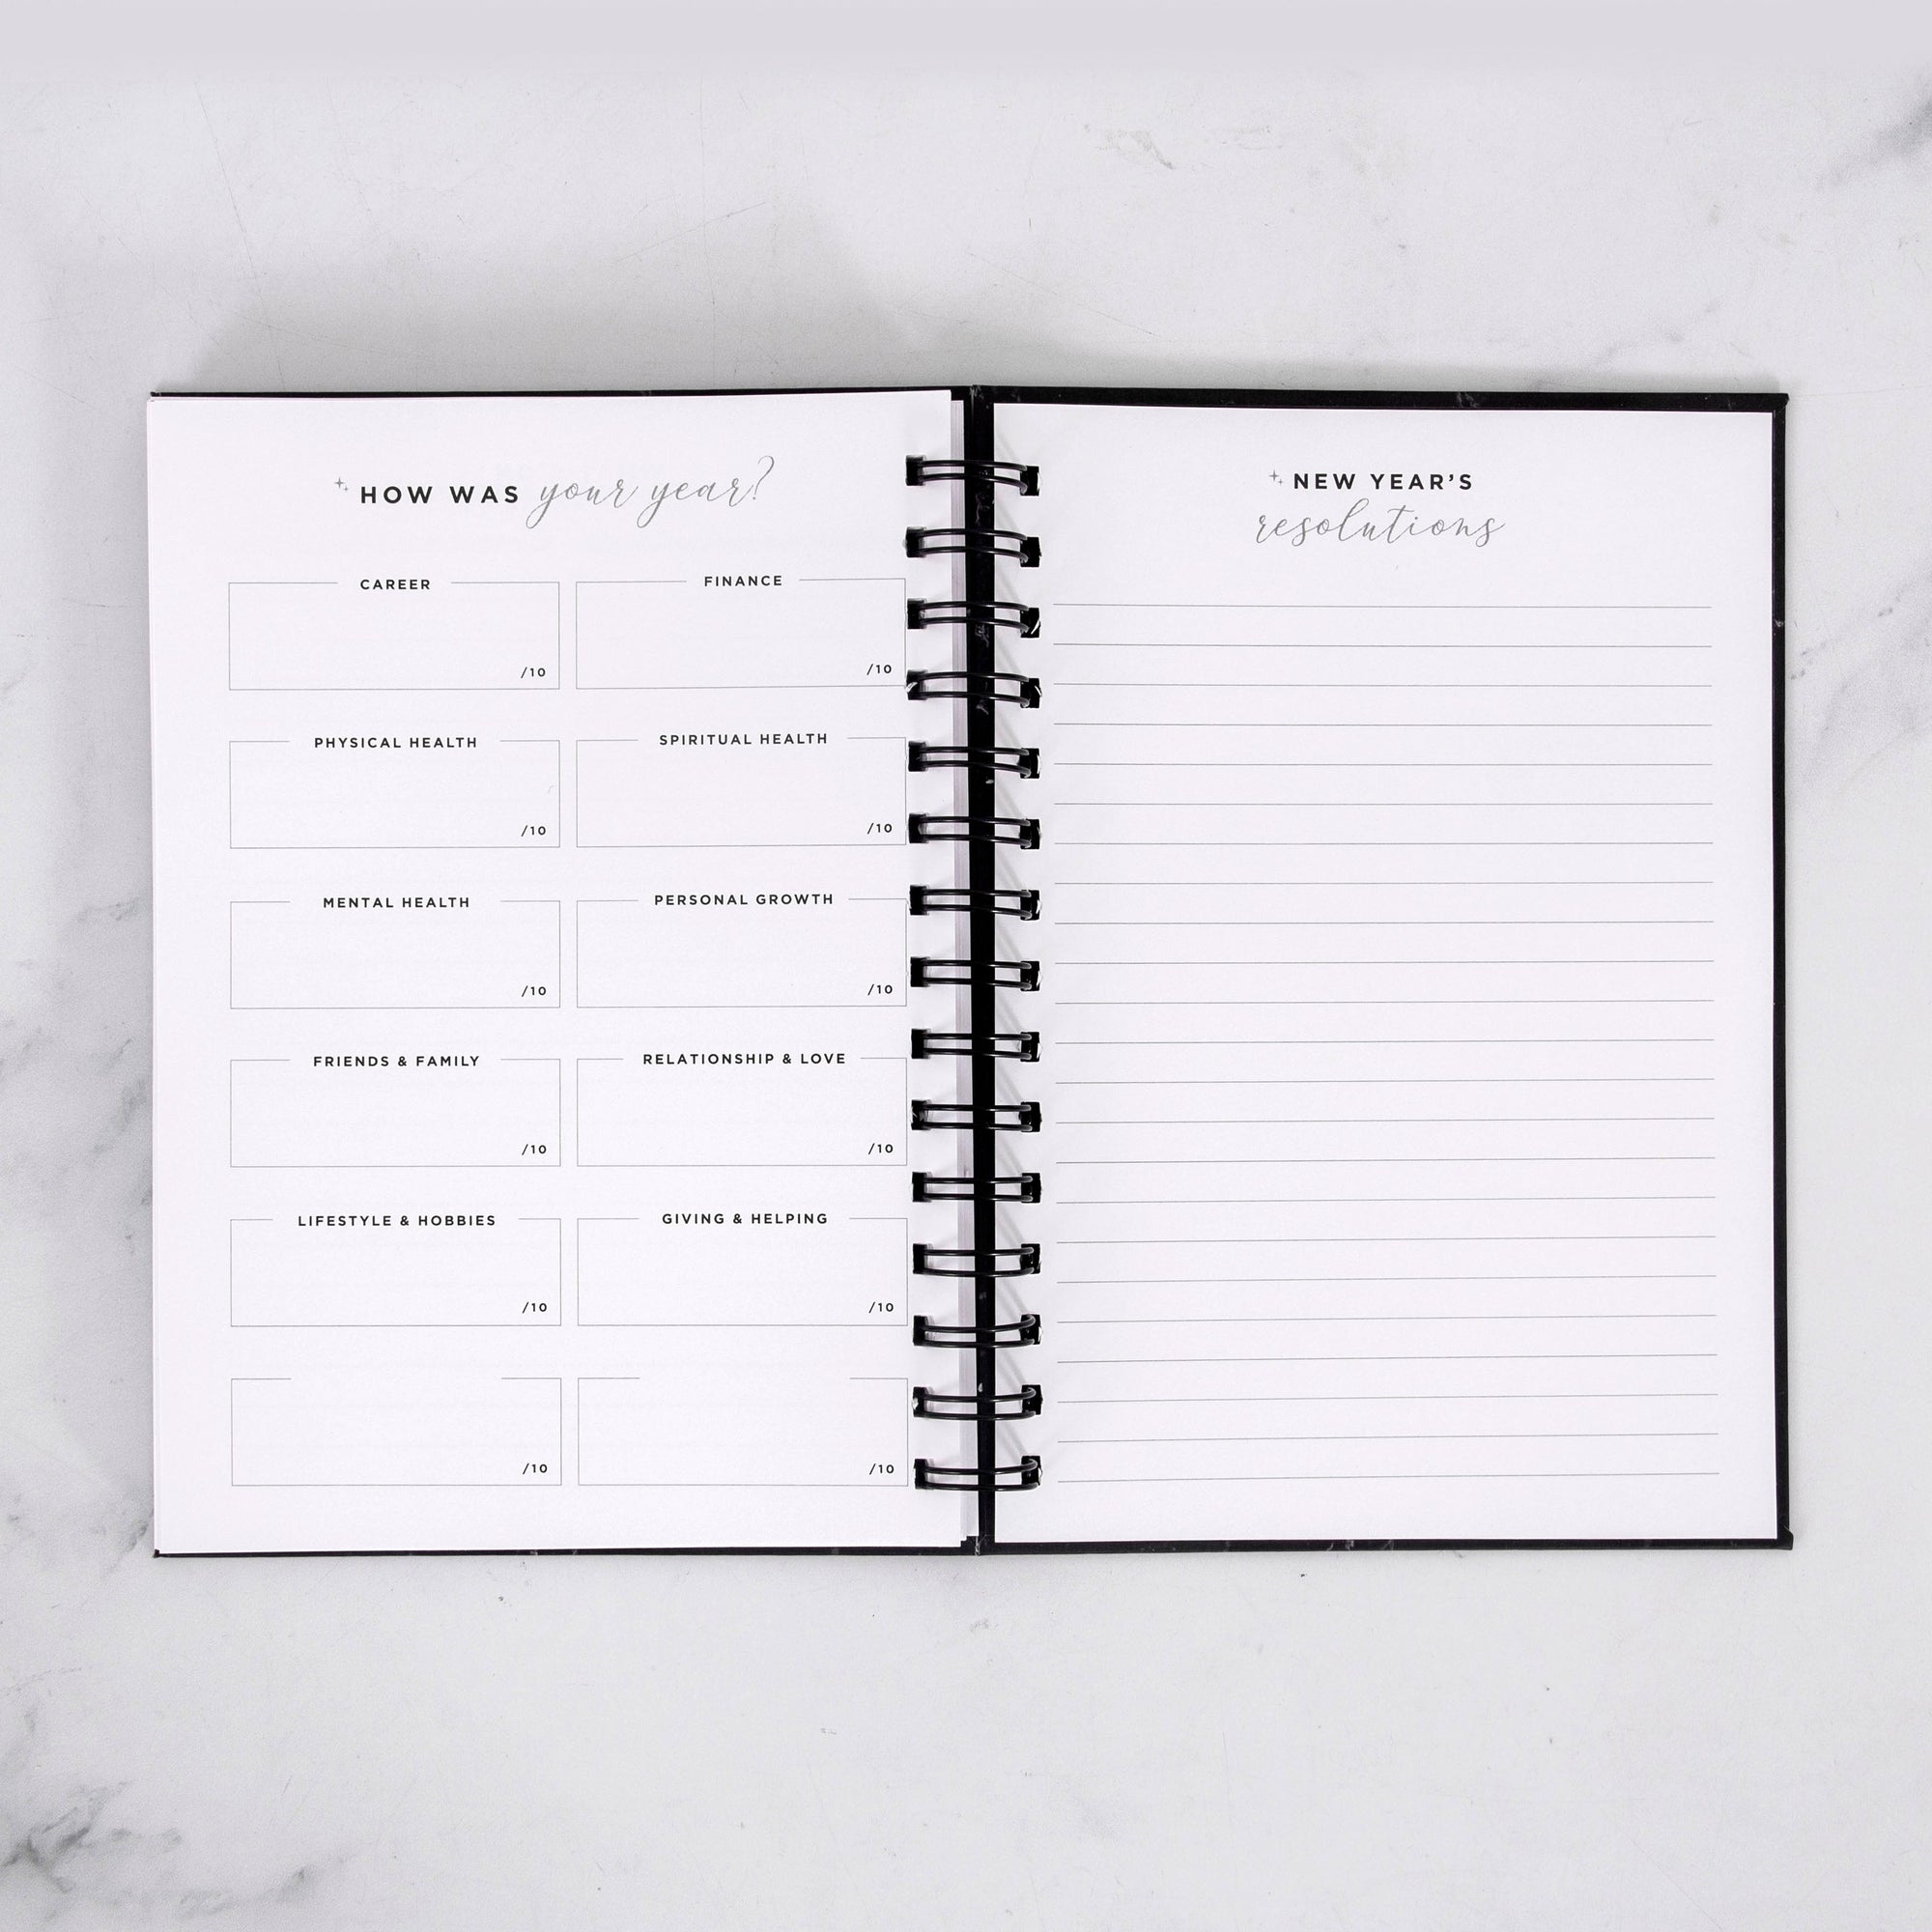 HOW WAS your year?
CAREER
/10
FINANCE
/10
PHYSICAL HEALTH
/10
SPIRITUAL HEALTH
/10
MENTAL HEALTH
/10
PERSONAL GROWTH
/10
FRIENDS & FAMILY
/10
RELATIONSHIP & LOVE
/10
LIFESTYLE & HOBBIES
/10
GIVING & HELPING
/10
/10
/10
NEW YEAR'S
resolutions